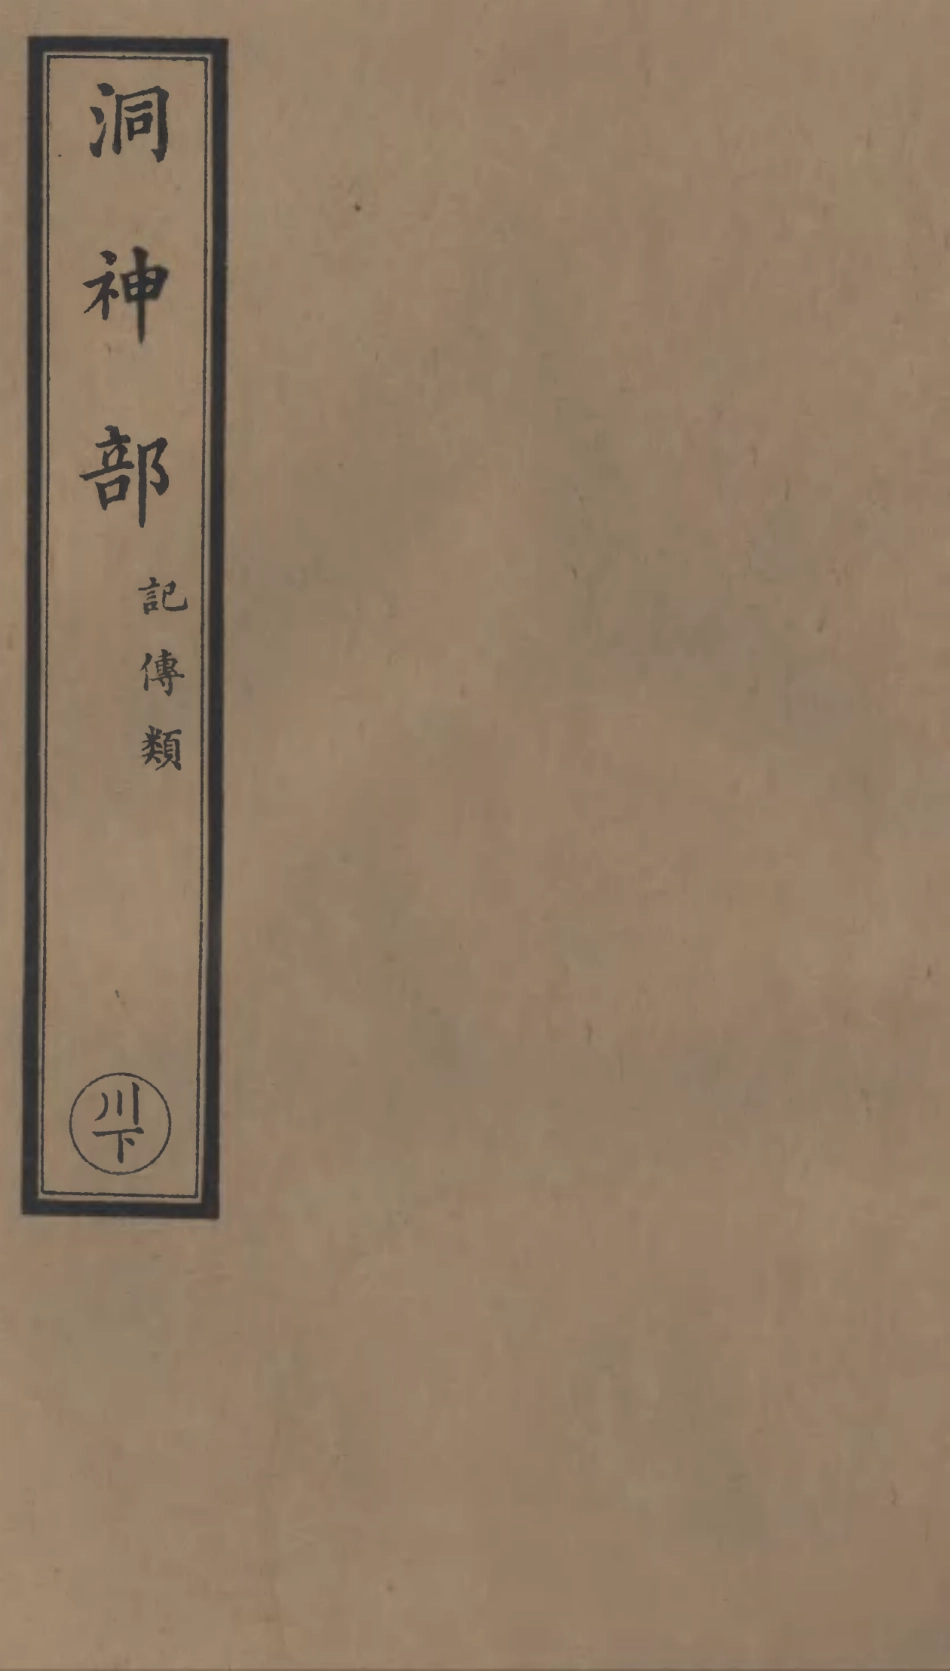 洞神部
記傳類
川下